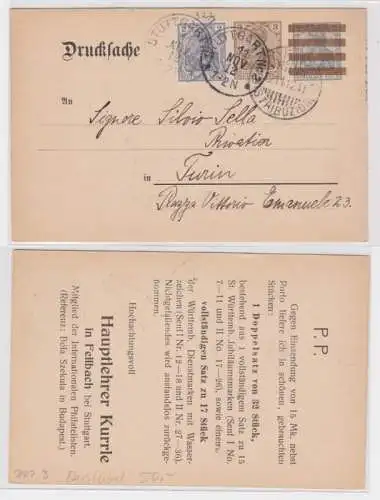 Drucksache
An
Signore Silvio Sella
Privatier
in
Turin
Piazza Vittorio Emanuele 23.
STUTTGART
NOV
3
P. P.
Gegen Einsendung von 15 Mk. nebst
Porto liefere ich in schönen, gebrauchten
Stücken:
1 Doppelsatz von 32 Stück,
bestehend aus 1 vollständigen Satz zu 15
St. Württemb. Jubiläumsmarken (Senf I No.
7—11 und II No. 17—26), sowie einem
vollständigen Satz zu 17 Stück
der Württemb. Dienstmarken mit Wasser-
zeichen (Senf I Nr. 12—18 und II Nr. 27—36).
Nichtgefallendes wird anstandslos zurückge-
nommen.
Hochachtungsvoll
Hauptlehrer Kurrle
in Fellbach bei Stuttgart.
Mitglied der Internationalen Philatelisten.
(Referenz: Béla Szekula in Budapest.)